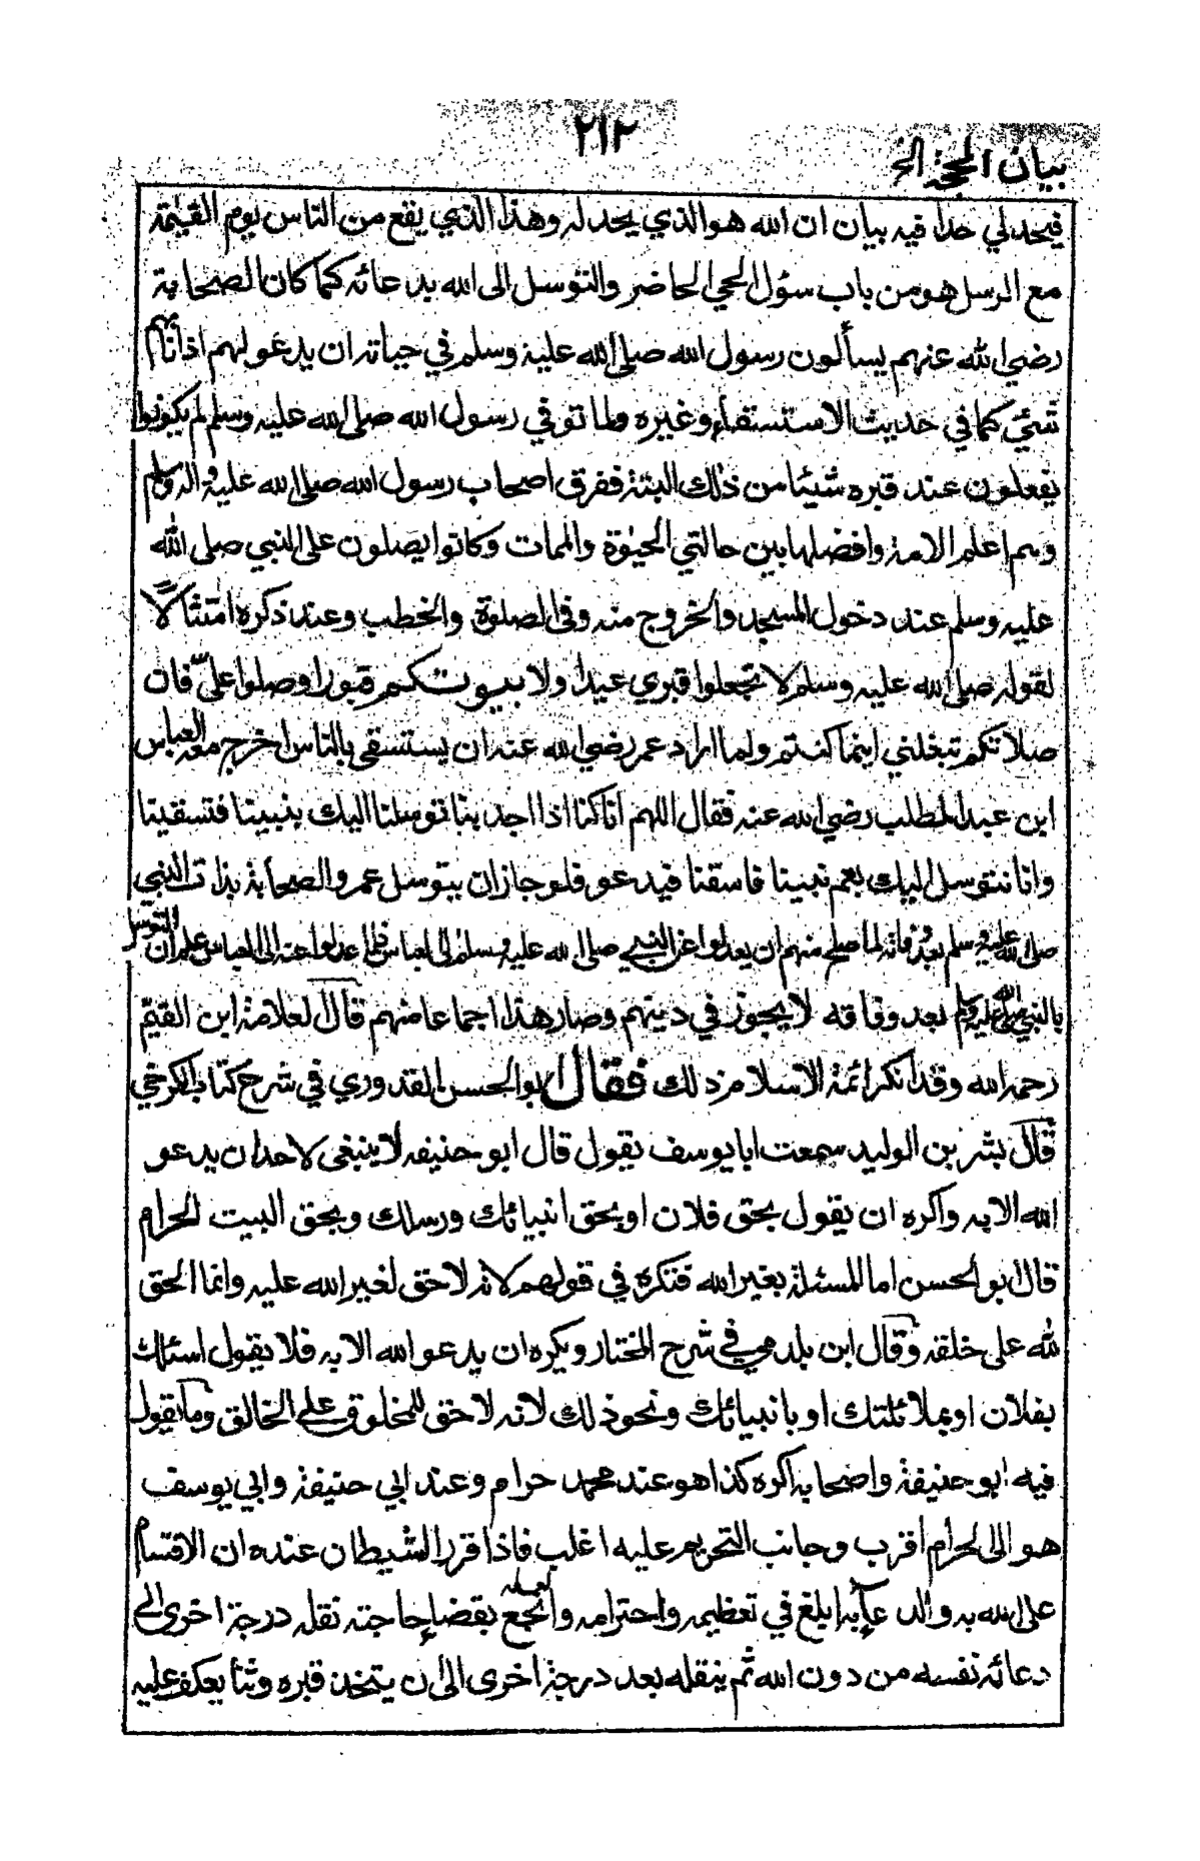 ٢١٢
بيان المحجة الخ
فيحد لي حدا فيه بيان ان الله هو الذي يحد له وهذا الذي يقع من الناس يوم القيمة
مع الرسل هو من باب سؤل الحي الحاضر والتوسل الى الله بدعائه كما كان الصحابة
رضي الله عنهم يسألون رسول الله صلى الله عليه وسلم في حياته ان يدعو لهم اذا نابهم
شيء كما في حديث الاستسقاء وغيره ولما توفي رسول الله صلى الله عليه وسلم لم يكونوا
يفعلون عند قبره شيئا من ذلك البتة ففرق اصحاب رسول الله صلى الله عليه واله وسلم
وهم اعلم الامة وافضلها بين حالتي الحيوة والممات وكانوا يصلون على النبي صلى الله
عليه وسلم عند دخول المسجد والخروج منه وفى الصلوة والخطب وعند ذكره امتثالا
لقوله صلى الله عليه وسلم لا تجعلوا قبري عيدا ولا بيوتكم قبورا وصلوا عليّ فان
صلاتكم تبغلني اينما كنتم ولما اراد عمر رضي الله عنه ان يستسقى بالناس اخرج معه العباس
ابن عبد المطلب رضي الله عنه فقال اللهم انا كنا اذا اجدبنا توسلنا اليك بنبينا فتسقينا
وانا نتوسل اليك بعم نبينا فاسقنا فيدعو فلو جاز ان يتوسل عمر والصحابة بذات النبي
صلى الله عليه وسلم بعد وفاته لما صلح منهم ان يعدلوا عن النبي صلى الله عليه وسلم الى العباس فلما عدلوا عنه الى العباس علم ان التوسل
بالنبي صلى الله عليه وسلم بعد وفاته لا يجوز في دينهم وصار هذا اجماعا منهم قال العلامة ابن القيم
رحمه الله وقد انكر ائمة الاسلام ذلك فقال ابو الحسن القدوري في شرح كتاب الكرخي
قال بشر بن الوليد سمعت ابا يوسف يقول قال ابو حنيفه لا ينبغى لاحد ان يدعو
الله الا به واكره ان يقول بحق فلان او بحق انبيائك ورسلك وبحق البيت الحرام
قال ابو الحسن اما المسئلة بغير الله فتكره في قولهم لانه لا حق لغير الله عليه وانما الحق
لله على خلقه وقال ابن بلدمي في شرح المختار ويكره ان يدعو الله الا به فلا يقول اسئلك
بفلان او بملائكتك او بانبيائك ونحو ذلك لانه لا حق للمخلوق على الخالق وما يقول
فيه ابو حنيفة واصحابه اكره كذا هو عند محمد حرام وعند ابي حنيفة وابي يوسف
هو الى الحرام اقرب وجانب التحريم عليه اغلب فاذا قرر الشيطان عنده ان الاقسام
على الله به والدعاء به ابلغ في تعظيمه واحترامه وانجع لقضاء حاجته نقله درجة اخرى الى
دعائه نفسه من دون الله ثم ينقله بعد درجة اخرى الى ان يتخذ قبره وثنا يعكف عليه